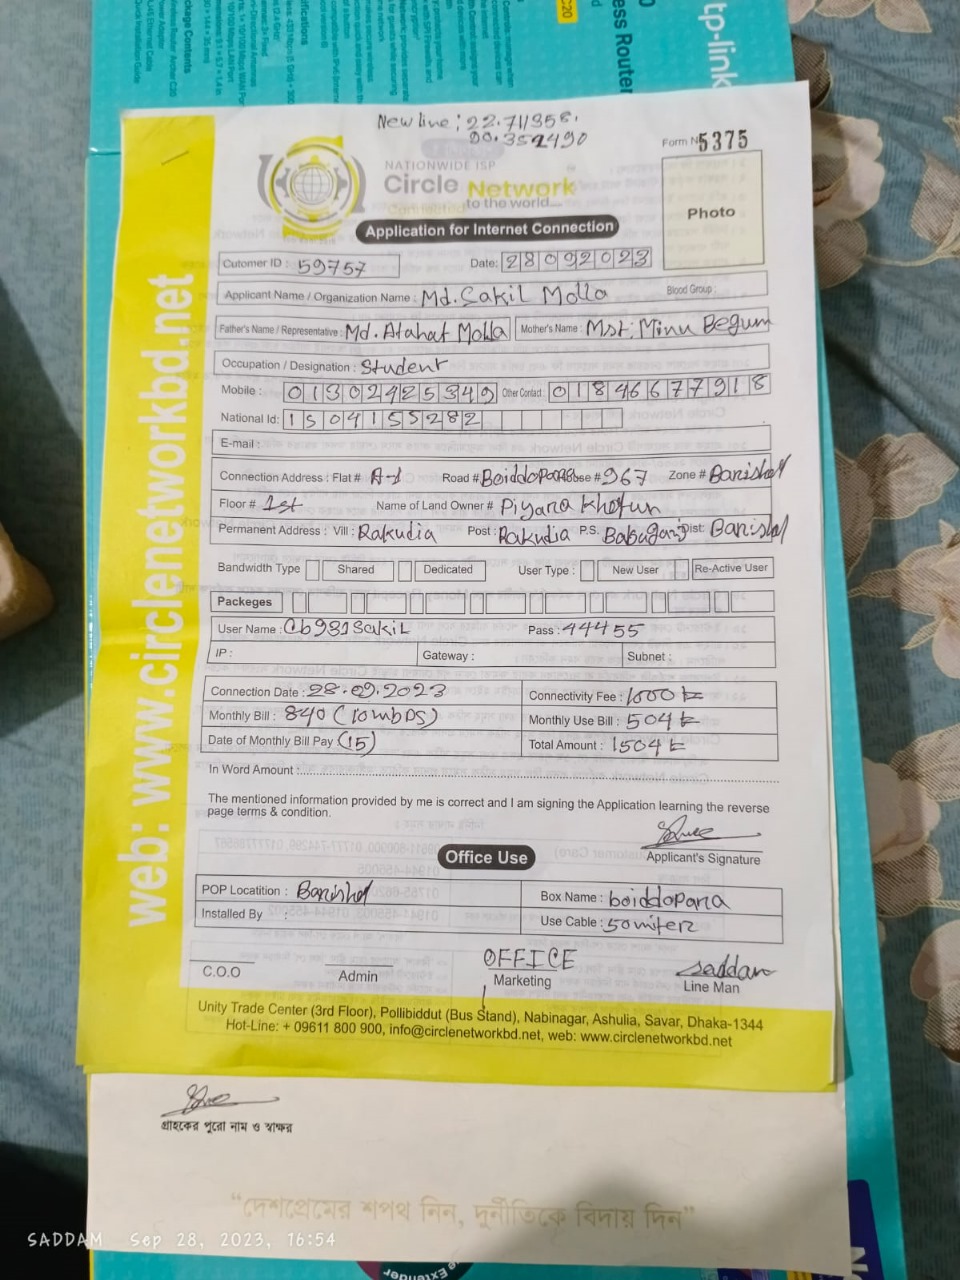 tp-link
ess Router
C20
New line : 22.711358.
00.352490
Form N 5375
NATIONWIDE ISP
Circle Network
to the world....
Photo
Application for Internet Connection
Cutomer ID : 59757
Date: 28092023
Applicant Name / Organization Name : Md. Sakil Molla Blood Group :
Father's Name / Representative : Md. Atahat Molla Mother's Name : Mst. Minu Begum
Occupation / Designation : Student
Mobile : 01302425349 Other Contact : 01846677918
National Id: 1504155282
E-mail:
Connection Address : Flat # A-1 Road # Boiddopara se # 967 Zone # Barishal
Floor # 1st Name of Land Owner # Piyara Khatun
Permanent Address : Vill : Rakudia Post : Rakudia P.S. Babuganj Dist: Barishal
Bandwidth Type Shared Dedicated User Type : New User Re-Active User
Packeges
User Name : Cb931Sakil Pass : 44455
IP : Gateway : Subnet :
Connection Date : 28.09.2023 Connectivity Fee : 1000 tk
Monthly Bill : 840 (10 mbps) Monthly Use Bill : 504 tk
Date of Monthly Bill Pay (15) Total Amount : 1504 tk
In Word Amount :
The mentioned information provided by me is correct and I am signing the Application learning the reverse
page terms & condition.
Applicant's Signature
Office Use
POP Locatition : Barishal Box Name : boiddopara
Installed By : Use Cable : 50 miter
C.O.O Admin OFFICE Marketing saddam Line Man
Unity Trade Center (3rd Floor), Pollibiddut (Bus Stand), Nabinagar, Ashulia, Savar, Dhaka-1344
Hot-Line: + 09611 800 900, info@circlenetworkbd.net, web: www.circlenetworkbd.net
web: www.circlenetworkbd.net
গ্রাহকের পুরো নাম ও স্বাক্ষর
“দেশপ্রেমের শপথ নিন, দুর্নীতিকে বিদায় দিন”
SADDAM Sep 28, 2023, 16:54